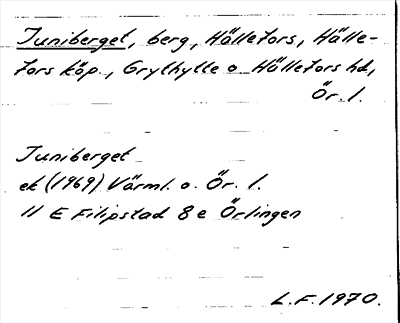 Juniberget, berg, Hällefors, Hälle-
fors köp., Grythytte o. Hällefors hd,
Ör. l.
Juniberget
ek (1969) Värml. o. Ör. l.
11 E Filipstad 8 e Örlingen
L.F. 1970.